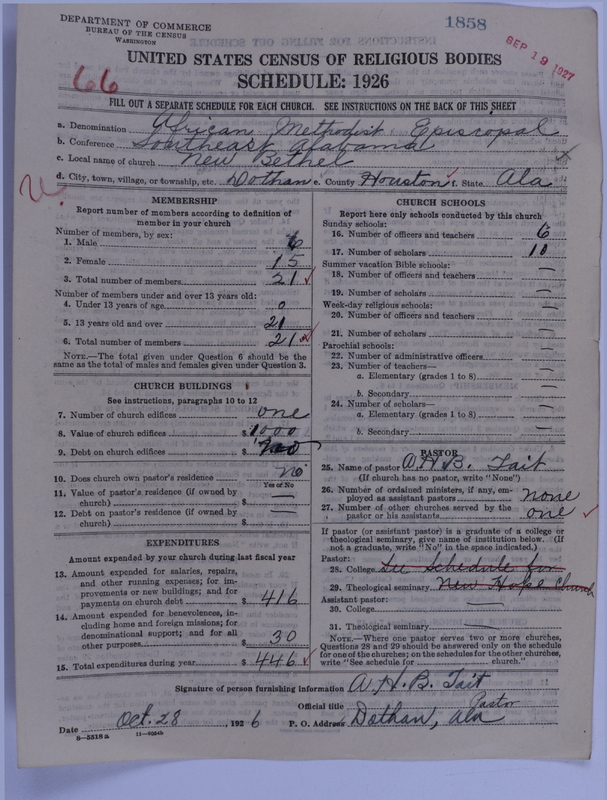 DEPARTMENT OF COMMERCE
BUREAU OF THE CENSUS
WASHINGTON
1858
SEP 19 1927
66
UNITED STATES CENSUS OF RELIGIOUS BODIES
SCHEDULE: 1926
FILL OUT A SEPARATE SCHEDULE FOR EACH CHURCH. SEE INSTRUCTIONS ON THE BACK OF THIS SHEET
a. Denomination African Methodist Episcopal
b. Conference Southeast Alabama
c. Local name of church New Bethel
d. City, town, village, or township, etc. Dothan e. County Houston f. State Ala
MEMBERSHIP
Report number of members according to definition of member in your church
Number of members, by sex:
1. Male 6
2. Female 15
3. Total number of members 21
Number of members under and over 13 years old:
4. Under 13 years of age 0
5. 13 years old and over 21
6. Total number of members 21
NOTE.—The total given under Question 6 should be the same as the total of males and females given under Question 3.
CHURCH BUILDINGS
See instructions, paragraphs 10 to 12
7. Number of church edifices one
8. Value of church edifices $ 1000
9. Debt on church edifices $
10. Does church own pastor's residence no
Yes or No
11. Value of pastor's residence (if owned by church) $ —
12. Debt on pastor's residence (if owned by church) $ —
EXPENDITURES
Amount expended by your church during last fiscal year
13. Amount expended for salaries, repairs, and other running expenses; for improvements or new buildings; and for payments on church debt $ 416
14. Amount expended for benevolences, including home and foreign missions; for denominational support; and for all other purposes $ 30
15. Total expenditures during year $ 446
CHURCH SCHOOLS
Report here only schools conducted by this church
Sunday schools:
16. Number of officers and teachers 6
17. Number of scholars 10
Summer vacation Bible schools:
18. Number of officers and teachers —
19. Number of scholars —
Week-day religious schools:
20. Number of officers and teachers —
21. Number of scholars —
Parochial schools:
22. Number of administrative officers —
23. Number of teachers—
a. Elementary (grades 1 to 8) —
b. Secondary —
24. Number of scholars—
a. Elementary (grades 1 to 8) —
b. Secondary —
PASTOR
25. Name of pastor A. H. B. Tait
(If church has no pastor, write "None")
26. Number of ordained ministers, if any, employed as assistant pastors none
27. Number of other churches served by the pastor or his assistants one
If pastor (or assistant pastor) is a graduate of a college or theological seminary, give name of institution below. (If not a graduate, write "No" in the space indicated.)
Pastor:
28. College See Schedule for
29. Theological seminary New Hope Church
Assistant pastor:
30. College —
31. Theological seminary —
NOTE.—Where one pastor serves two or more churches, Questions 28 and 29 should be answered only on the schedule for one of the churches; on the schedules for the other churches, write "See schedule for church."
Signature of person furnishing information A. H. B. Tait
Official title Pastor
Date Oct. 28, 1926 P. O. Address Dothan, Ala
8—5518a 11—9034b